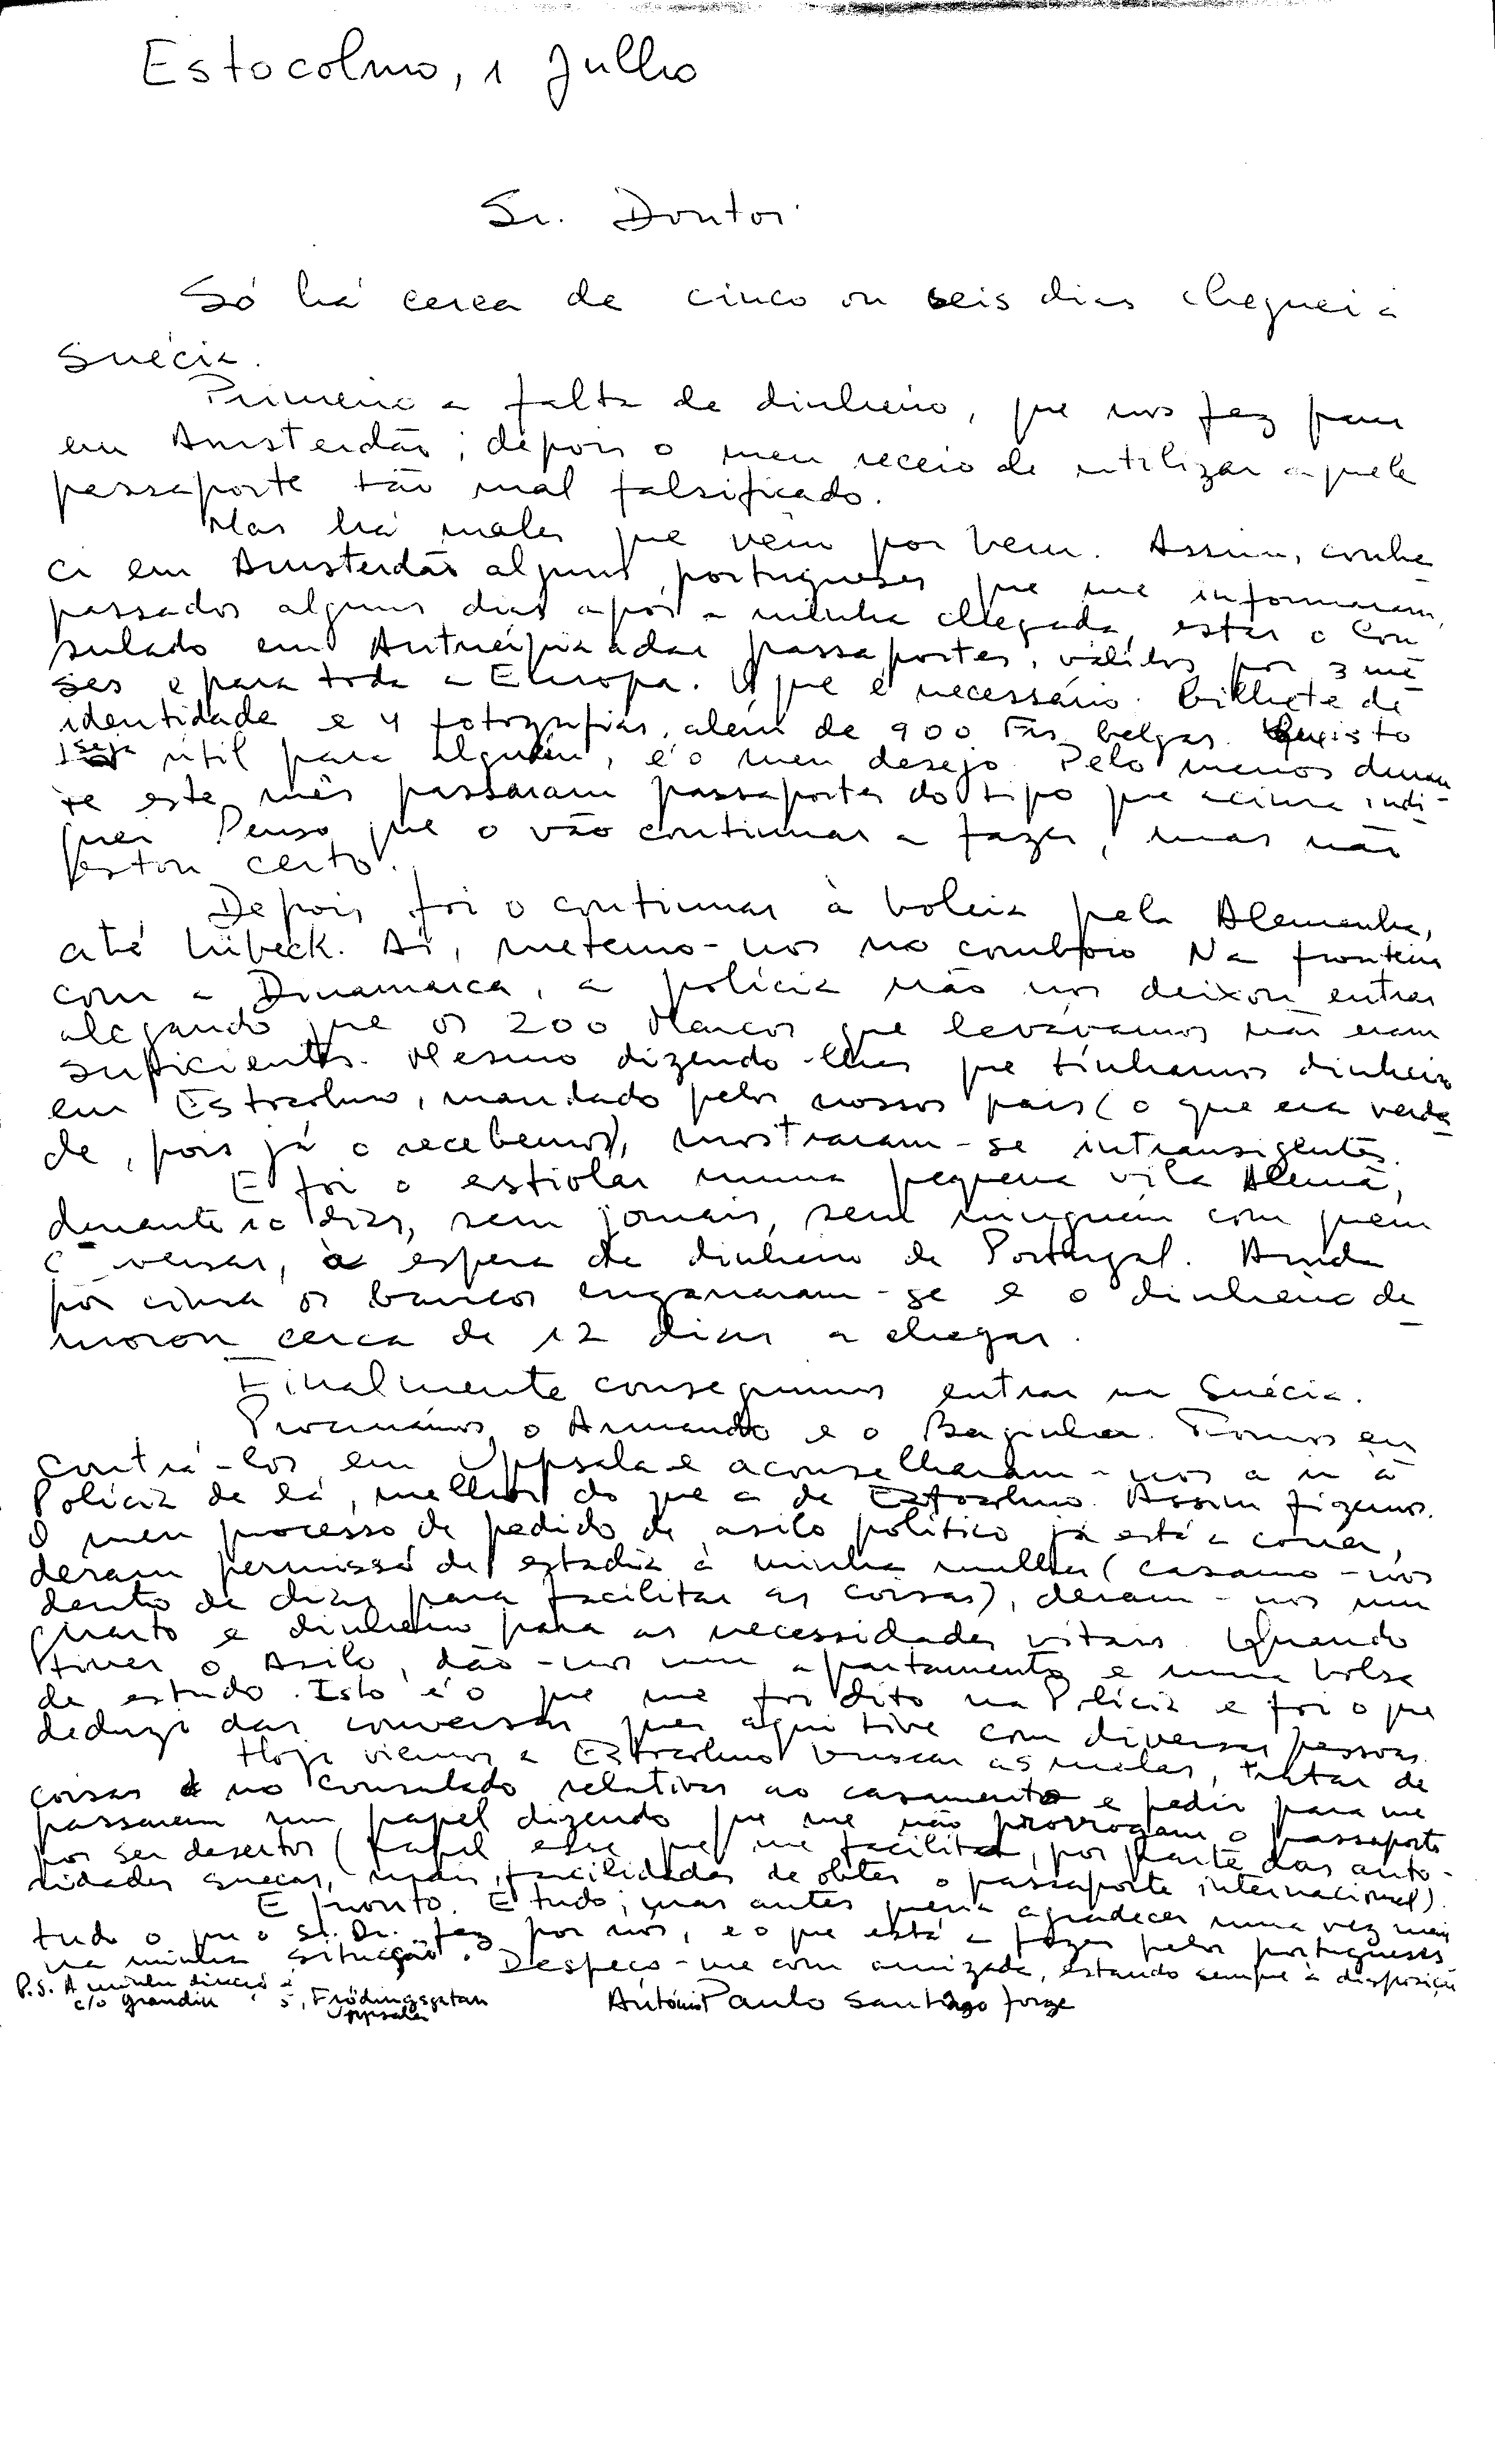 Estocolmo, 1 Julho
Sr. Doutor
Só há cerca de cinco ou seis dias cheguei à
Suécia.
Primeiro a falta de dinheiro, que nos fez parar
em Amsterdão; depois o meu receio de utilizar aquele
passaporte tão mal falsificado.
Mas há males que vêm por bem. Assim, conhe
ci em Amsterdão alguns portugueses que me informaram,
passados alguns dias após a minha chegada, estar o Con
sulado em Antuérpia a dar passaportes, válidos por 3 me
ses e para toda a Europa. O que é necessário: bilhete de
identidade e 4 fotografias, além de 900 Frs belgas. Que isto
seja útil para alguém, é o meu desejo. Pelo menos duran
te este mês passaram passaportes do tipo que acima indi-
quei. Penso que o vão continuar a fazer, mas não
estou certo.
Depois foi o continuar à boleia pela Alemanha,
até Lübeck. Aí, metemo-nos no comboio. Na fronteira
com a Dinamarca, a polícia não nos deixou entrar
alegando que os 200 Marcos que levávamos não eram
suficientes. Mesmo dizendo-lhes que tínhamos dinheiro
em Estocolmo, mandado pelos nossos pais (o que era verda
de, pois já o recebemos), mostraram-se intransigentes.
E foi o estiolar numa pequena vila Alemã,
durante 10 dias, sem jornais, sem ninguém com quem
c versar, à espera de dinheiro de Portugal. Ainda
por cima os bancos enganaram-se e o dinheiro de
morou cerca de 12 dias a chegar.
Finalmente conseguimos entrar na Suécia.
Procurámos o Armando e o Baginha. Fomos en
contrá-los em Uppsala e aconselharam-nos a ir à
Polícia de lá, melhor do que a de Estocolmo. Assim fizemos.
O meu processo de pedido de asilo político já está a correr,
deram permissão de estadia à minha mulher (casamo-nos
dentro de dias para facilitar as coisas), deram-nos um
quarto e dinheiro para as necessidades vitais. Quando
tiver o Asilo, dão-nos um apartamento e uma bolsa
de estudo. Isto é o que me foi dito na Polícia e foi o que
deduzi das conversas que aqui tive com diversas pessoas.
Hoje viemos a Estocolmo buscar as malas, tratar de
coisas no consulado relativas ao casamento e pedir para me
passarem um papel dizendo que me não prorrogam o passaporte
por ser desertor (papel esse que me facilita, por parte das auto-
ridades suecas, mais facilidades de obter o passaporte internacional).
E pronto. É tudo; mas antes queria agradecer uma vez mais
tudo o que o Sr. Dr. fez por nós, e o que está a fazer pelos portugueses
na minha situação. Despeço-me com amizade, estando sempre à disposição
António Paulo Santiago Jorge
P.S. A minha direcção é
c/o Grandin 5, Frödingsgatan
Uppsala